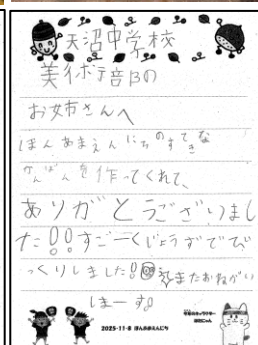 天沼中学校
美術部の
お姉さんへ
ほんあまえんにちのすてきな
かんばんを作ってくれて、
ありがとうございまし
た!!すごーくじょうずでび
っくりしました!!またおねがい
しまーす。
2025-11-8 ほんあまえんにち